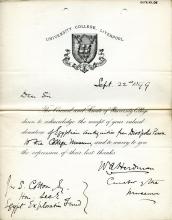 UNIVERSITY COLLEGE, LIVERPOOL.
Sept. 22nd 1899
Dear Sir
The Council and Senate of University College
desire to acknowledge the receipt of your valued
donation of Egyptian Antiquities from
to the College Museum, and to convey to you
the expression of their best thanks
W A Herdman
Curator of the
Museum
J. S. Cotton Esq.
Hon. Sec.
Egypt Exploration Fund